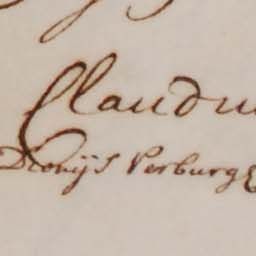 Claudiu
Dionijs Verburge